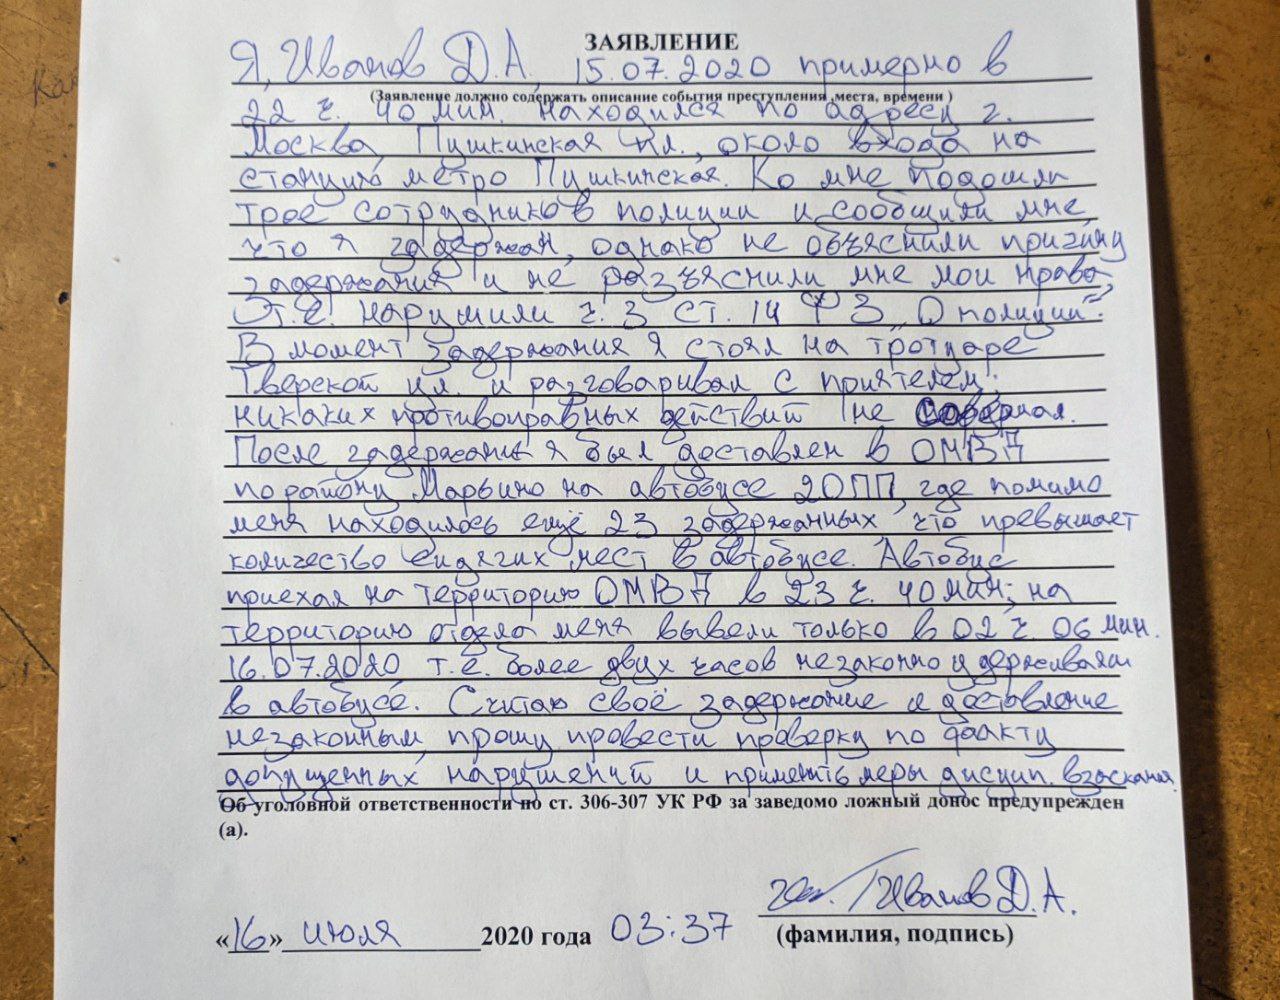 ЗАЯВЛЕНИЕ
Я, Иванов Д.А., 15.07.2020 примерно в
(Заявление должно содержать описание события преступления ,места, времени )
22 ч. 40 мин. находился по адресу г.
Москва, Пушкинская пл., около входа на
станцию метро Пушкинская. Ко мне подошли
трое сотрудников полиции и сообщили мне,
что я задержан, однако не объяснили причину
задержания и не разъяснили мне мои права,
т.е. нарушили ч. 3 ст. 14 ФЗ "О полиции".
В момент задержания я стоял на тротуаре
Тверской ул. и разговаривал с приятелем;
никаких противоправных действий не совершал.
После задержания я был доставлен в ОМВД
по району Марьино на автобусе 2ОПП, где помимо
меня находилось ещё 23 задержанных, что превышает
количество сидячих мест в автобусе. Автобус
приехал на территорию ОМВД в 23 ч. 40 мин; на
территорию отдела меня вывели только в 02 ч. 06 мин.
16.07.2020 т.е. более двух часов незаконно удерживали
в автобусе. Считаю своё задержание и доставление
незаконным, прошу провести проверку по факту
допущенных нарушений и применить меры дисцип. взыскания.
Об уголовной ответственности по ст. 306-307 УК РФ за заведомо ложный донос предупрежден
(а).
Иванов Д.А.
«16» июля 2020 года 03:37
(фамилия, подпись)